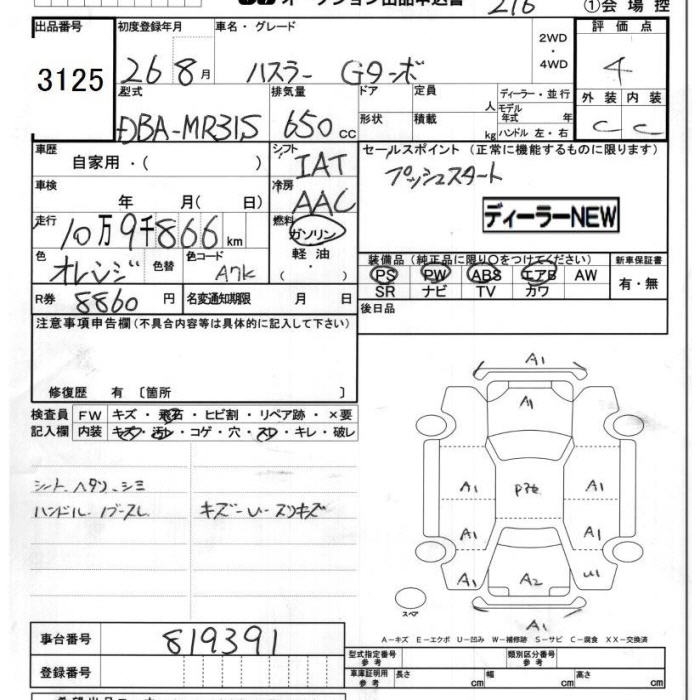 オークション出品申込書 216 ①会場控
出品番号 3125
初度登録年月 26 8月
車名・グレード ハスラー Gターボ
2WD・4WD
評価点 4
外装 内装
C C
型式 DBA-MR31S
排気量 650cc
ドア 定員 人
形状 積載 kg
ディーラー・並行
モデル年式 年
ハンドル 左・右
車歴 自家用・( )
シフト IAT
車検 年 月( 日)
冷房 AAC
走行 10万9千866km
燃料 ガソリン 軽油・( )
色 オレンジ 色替 色コード A7K
R券 8860円 名変通知期限 月 日
セールスポイント (正常に機能するものに限ります)
プッシュスタート
ディーラーNEW
装備品 (純正品に限り○をつけてください)
PS PW ABS エアB AW
SR ナビ TV カワ
新車保証書
有・無
後日品
注意事項申告欄 (不具合内容等は具体的に記入して下さい)
修復歴 有 〔箇所 〕
検査員 FW キズ・飛石・ヒビ割・リペア跡・×要
記入欄 内装 キズ・汚レ・コゲ・穴・スレ・キレ・破レ
シート、ヘタリ、シミ
ハンドル、ノブスレ
キズ-U-スリキズ
A1
A1
A1 P3セ A1
A1 A1
A1 A2 U1
スペア A1
A-キズ E-エクボ U-凹み W-補修跡 S-サビ C-腐食 XX-交換済
事台番号 819391
登録番号
型式指定番号 参考 類別区分番号 参考
車庫証明用 参考 長さ cm 幅 cm 高さ cm